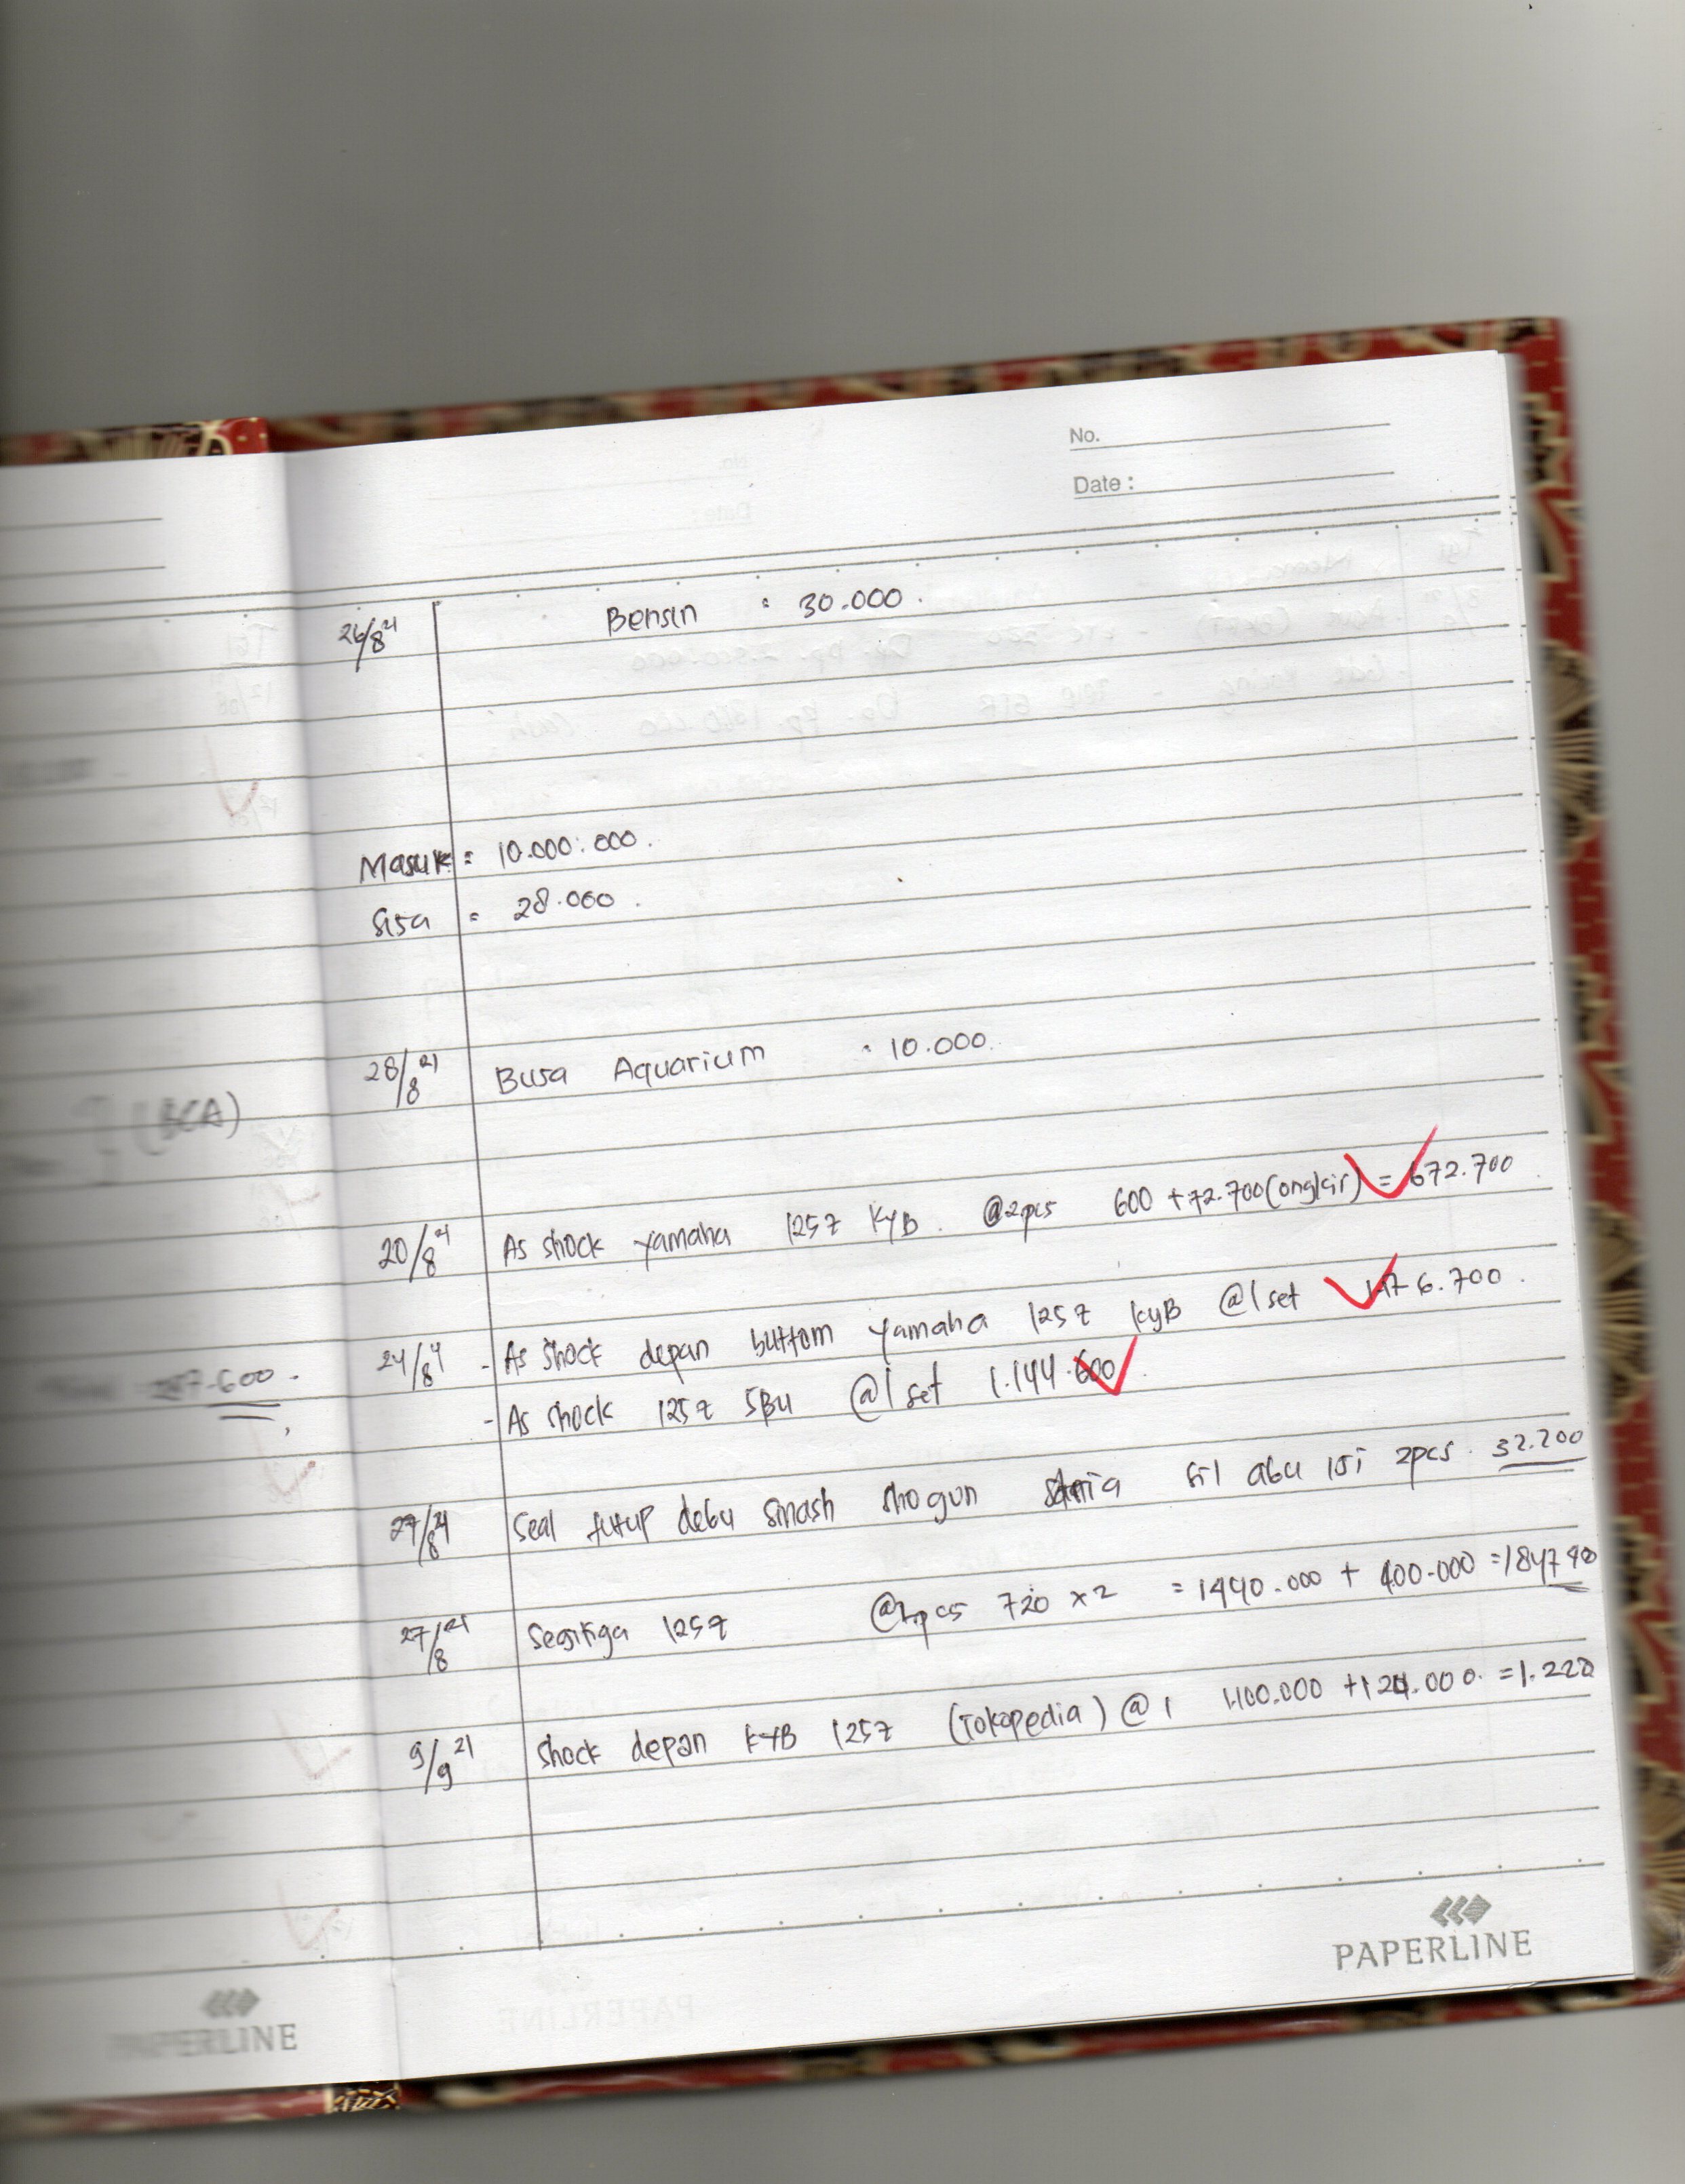 No.
Date :
26/8 21 Bensin : 30.000.
Masuk = 10.000.000.
Sisa = 28.000.
28/8 21 Busa Aquarium : 10.000.
(BCA)
20/8 21 As shock yamaha 125z KYB. @2pcs 600 + 72.700 (ongkir) = 672.700
24/8 21 - As shock depan buttom yamaha 125z kyB @1 set 6.700.
.600.
- As shock 125z SBU @1 set 1.144.600.
27/8 21 Seal tutup debu smash shogun satria sil abu isi 2pcs. 32.200
27/8 21 Segitiga 125z @2pcs 720 x 2 = 1440.000 + 400.000 =
9/9 21 Shock depan KYB 125z (Tokopedia) @1 1.100.000 + 124.000. = 1.22
PAPERLINE
PAPERLINE